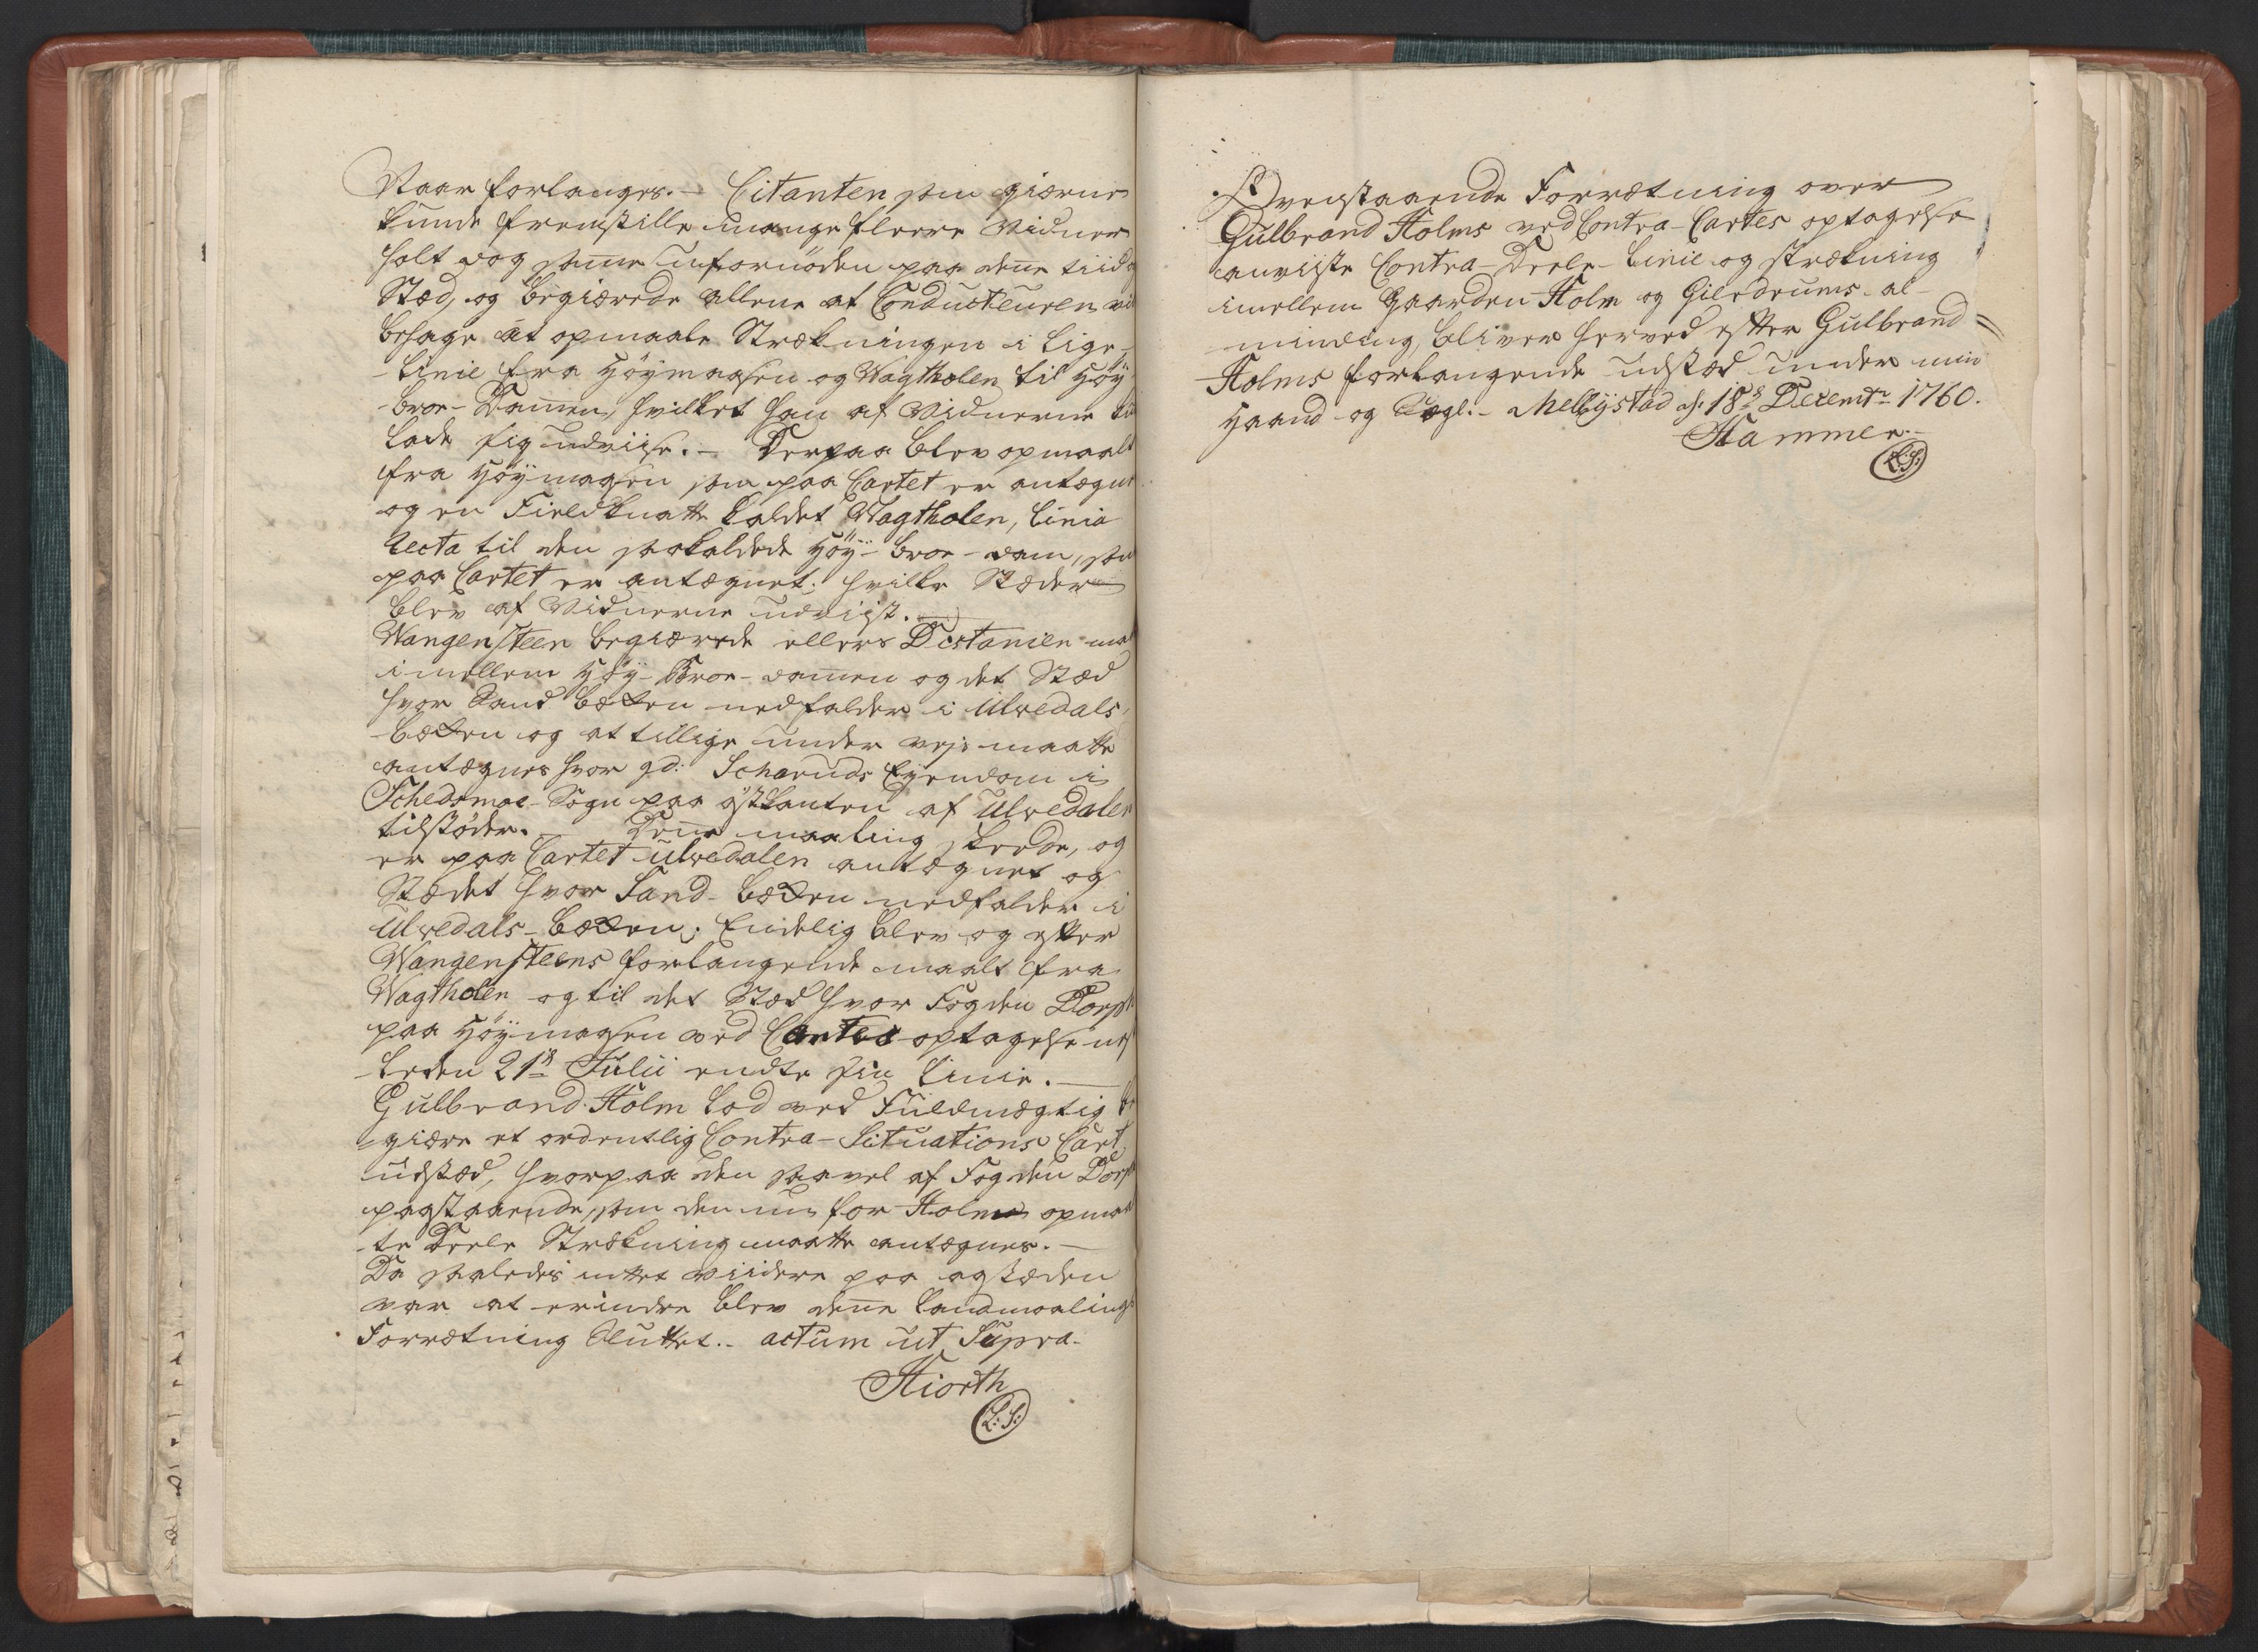 Naar forlanges. – Citanten som giærne
kunde fremstille mange fleere Vidner
holt dog same ufornöden paa dene tiid og
Stæd, og begiærede allene at Conducteuren vil
behage at opmaale Strækningen i Lige-
-Linie fra Höymaasen og Wagtholen til Höy-
-broe-Damen, hvilket han af Vidnerne
lade sig udviise. – Derpaa blev opmaalt
fra Höymaasen som paa Cartet er antegnet
og en Fieldknatte kaldet Wagtholen, Linia
recta til den saakaldede Höy-broe-dam, som
paa Cartet er antægnet; hvilke Stæder
blev af Vidnerne udviist. –
Wangensteen begiærede ellers Distancen
imellem Höy-Broe-damen og det Stæd
hvor Sand bæken nedfalder i Ulvedals
-bæken og at tillige under veys maatte
antegnes hvor gd: Scharuds Eyendom i
Schedsmoe-Sogn paa östkanten af Ulvedalen
tilstöder. – Dene maaling skeede, og
er paa Cartet Ulvedalen antegnet og
Stædet hvor Sand-bæken nedfalder i
Ulvedals-bæken; Endelig blev og efter
Wangensteens forlangende maalt fra
Wagtholen og til det Stæd hvor Fogden Dorph
paa Höymaasen ved Cartes optagelse
-leden 21de Julii endte sin Linie. –
Gulbrand Holm lod ved Fuldmægtig be
giære et ordentlig Contra-Situations Cart
udstæd, hvorpaa den saavel af Fogden Dorph
paastaaende, som den nu for Holm opmaal
-te Deele Strækning maatte antegnes. –
Da saaledes intet viidere paa aastæden
var at erindre blev dene Landmaalings
Forrætning Sluttet. – actum ut Supra.
Hiorth
(L:S:)
Ovenstaaende Forrætning over
Gulbrand Holms ved Contra-Cartes optagelse
anviiste Contra-Deele-Linie og strækning
imellem Gaarden Holm og Gierdrums al-
minding, bliver herved efter Gulbrand =
Holms forlangende udstæd under min
Haand og Segl. – Mellystad d: 18de Decembr 1760.
Hammer. –
(L:S:)